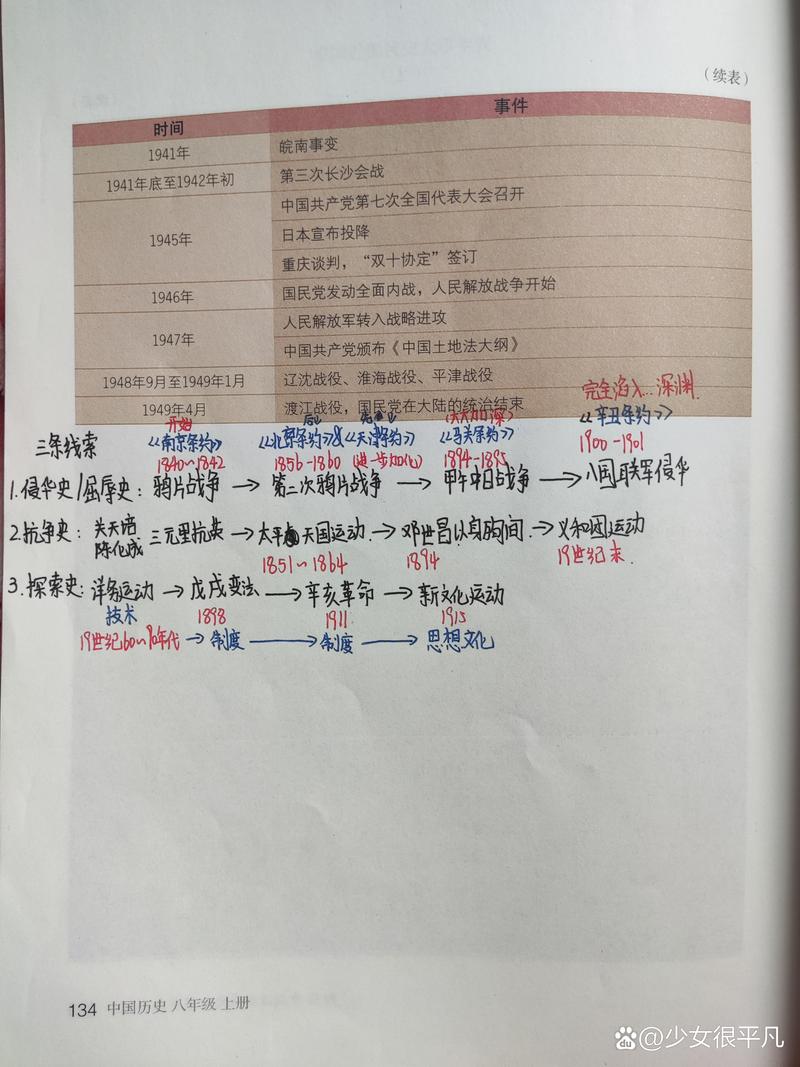 (续表)
时间 事件
1941年 皖南事变
1941年底至1942年初 第三次长沙会战
1945年 中国共产党第七次全国代表大会召开
日本宣布投降
重庆谈判，“双十协定”签订
1946年 国民党发动全面内战，人民解放战争开始
1947年 人民解放军转入战略进攻
中国共产党颁布《中国土地法大纲》
1948年9月至1949年1月 辽沈战役、淮海战役、平津战役
1949年4月 渡江战役，国民党在大陆的统治结束
完全陷入…深渊
开始 (大大加深)
三条线索 《南京条约》 《北京条约》《天津条约》 《马关条约》 《辛丑条约》
1840~1842 1856-1860 (进一步加化) 1894-1895 1900-1901
1.侵华史/屈辱史：鸦片战争→第二次鸦片战争→甲午中日战争→八国联军侵华
2.抗争史：关天培 陈化成 三元里抗英→太平天国运动→邓世昌以身胸间→义和团运动
1851~1864 1894 19世纪末
3.探索史：洋务运动→戊戌变法→辛亥革命→新文化运动
技术 1898 1911 1915
19世纪60~90年代→制度→制度→思想文化
134 中国历史 八年级 上册
Bai du @少女很平凡